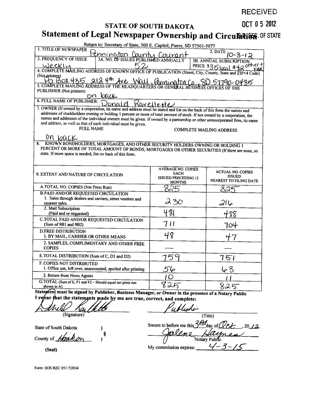 RECEIVED
OCT 05 2012
STATE OF SOUTH DAKOTA
Statement of Legal Newspaper Ownership and Circulation OF STATE
Return to: Secretary of State, 500 E. Capitol, Pierre, SD 57501-5077
1. TITLE OF NEWSPAPER Pennington County Courant Date 10-3-12
3. FREQUENCY OF ISSUE Weekly
3A. NO. OF ISSUES PUBLISHED ANNUALLY 52
3B. ANNUAL SUBSCRIPTION PRICE
4. COMPLETE MAILING ADDRESS OF KNOWN OFFICE OF PUBLICATION (Street, City, County, State and ZIP+4 Code) (Not printers)
PO Box 435 212 4th Ave Wall Pennington Co. SD 57790-0435
5. COMPLETE MAILING ADDRESS OF THE HEADQUARTERS OR GENERAL BUSINESS OFFICES OF THE
PUBLISHER (Not printers)
on back
6. FULL NAME OF PUBLISHER: Donald Ravellette
7. OWNER (If owned by a corporation, its name and address must be stated and list on the back of this form the names and
addresses of stockholders owning or holding 1 percent or more of total amount of stock. If not owned by a corporation, the
names and addresses of the individual owners must be given. If owned by a partnership or other unincorporated firm, its name
and address, as well as that of each individual must be given.
FULL NAME COMPLETE MAILING ADDRESS
On back
8. KNOWN BONDHOLDERS, MORTGAGEES, AND OTHER SECURITY HOLDERS OWNING OR HOLDING 1
PERCENT OR MORE OF TOTAL AMOUNT OF BONDS, MORTGAGES OR OTHER SECURITIES (If there are none, so
state. If more space is needed, list on back of this form.
9. EXTENT AND NATURE OF CIRCULATION
AVERAGE NO. COPIES EACH ISSUED PRECEDING 12 MONTHS
ACTUAL NO. COPIES ISSUED NEAREST TO FILING DATE
A.TOTAL NO. COPIES (Net Press Run) 825 825
B.PAID AND/OR REQUESTED CIRCULATION
1. Sales through dealers and carriers, street vendors and counter sales. 230 216
2. Mail Subscription (Paid and or requested) 481 488
C.TOTAL PAID AND/OR REQUESTED CIRCULATION
(Sum of 9B1 and 9B2) 711 704
D.FREE DISTRIBUTION
1. BY MAIL, CARRIER OR OTHER MEANS 48 47
2. SAMPLES, COMPLIMENTARY AND OTHER FREE COPIES
E. TOTAL DISTRIBUTION (Sum of C, D1 and D2) 759 751
F. COPIES NOT DISTRIBUTED
1. Office use, left over, unaccounted, spoiled after printing 56 63
2. Return from News Agents 10 11
G.TOTAL (Sum of E, F1 and F2 – Should equal net press run shown in A) 825 825
Statement must be signed by Publisher, Business Manager, or Owner in the presence of a Notary Public
I swear that the statements made by me are true, correct, and complete:
Publisher
(Signature) (Title)
State of South Dakota )
§
County of Haakon )
(Seal)
Sworn to before me this 3rd day of Oct, 2012
Notary Public
My commission expires: 4-3-15
Form: SOS REC 051 7/2004